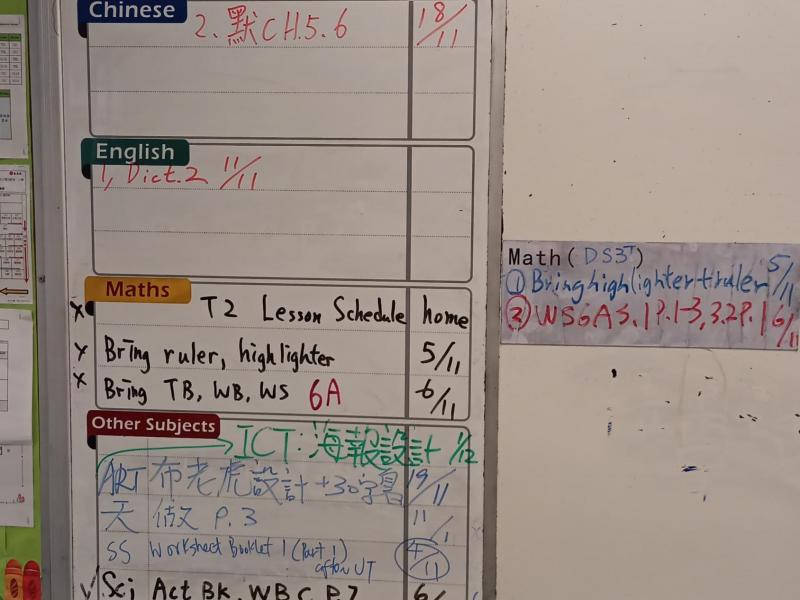 Chinese
2. 默CH.5.6 18/11
English
1, Dict.2 11/11
Maths
T2 Lesson Schedule home
Bring ruler, highlighter 5/11
Bring TB, WB, WS 6A 6/11
Other Subjects
ICT: 海報設計 1/12
ART 布老虎設計+30字 19/11
天 做文 P.3 11/1
SS Worksheet Booklet 1 (Part 1) after UT 4/11
Sci Act BK, WB C. P.7 6/
Math (DS3T)
① Bring highlighter+ruler 5/11
② WS6A 3.1 P.1-3, 3.2 P.1 6/11